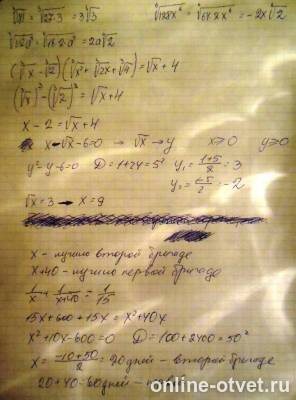 ∜81 = ∜27·3 = 3∜3      ⁶√128x⁶ = ⁶√64·2x⁶ = -2x ⁶√2
= 2a∜2
(∛x - ∛2)(∛x² + ∛2x + ∛4) = √x + 4
(∛x)³ - (∛2)³ = √x + 4
x - 2 = √x + 4
x - √x - 6 = 0 → √x → y   x ≥ 0   y ≥ 0
y² - y - 6 = 0   D = 1 + 24 = 5²   y₁ = (1+5)/2 = 3
y₂ = (1-5)/2 = -2
√x = 3 → x = 9
x - нужно второй бригаде
x + 40 - нужно первой бригаде
1/x + 1/(x+40) = 1/15
15x + 600 + 15x = x² + 40x
x² + 10x - 600 = 0   D = 100 + 2400 = 50²
x = (-10+50)/2 = 20 дней - второй бригаде
20 + 40 = 60 дней -
online-otvet.ru